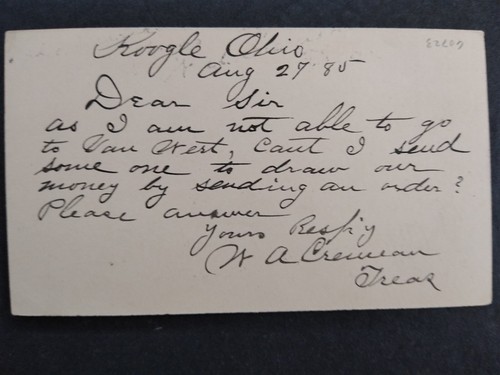 Koogle Ohio
Aug 27 85
Dear Sir
as I am not able to go
to Van Wert, Cant I send
some one to draw our
money by sending an order?
Please answer
Yours Resp'y
W A Cremean
Treas